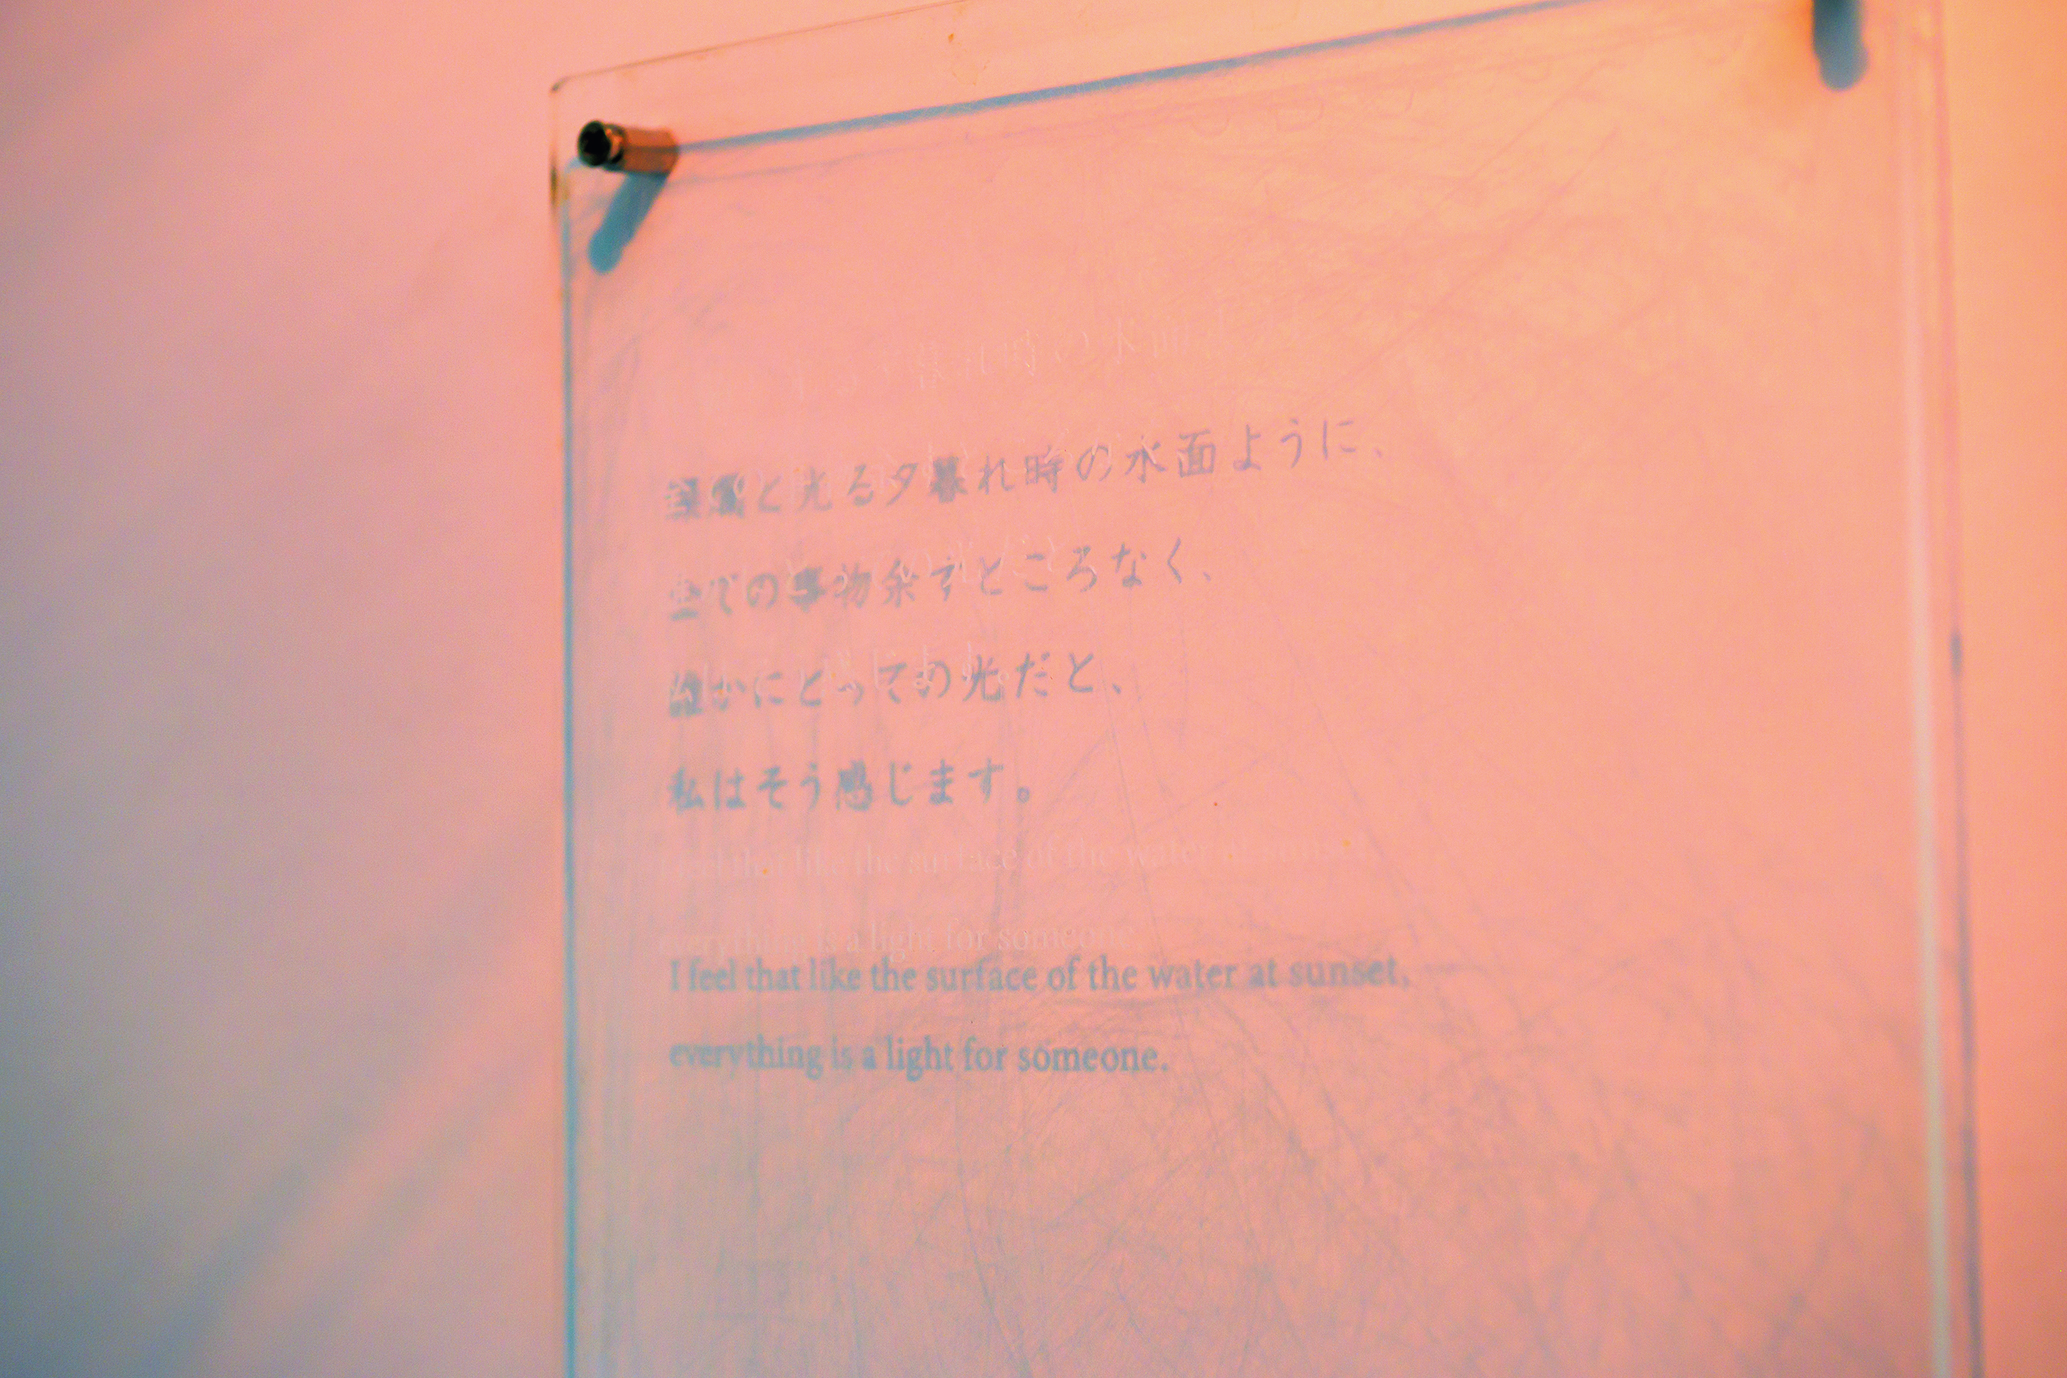 と光る夕暮れ時の水面ように、
全ての事物余すところなく、
誰かにとっての光だと、
私はそう感じます。
I feel that like the surface of the water at sunset,
everything is a light for someone.